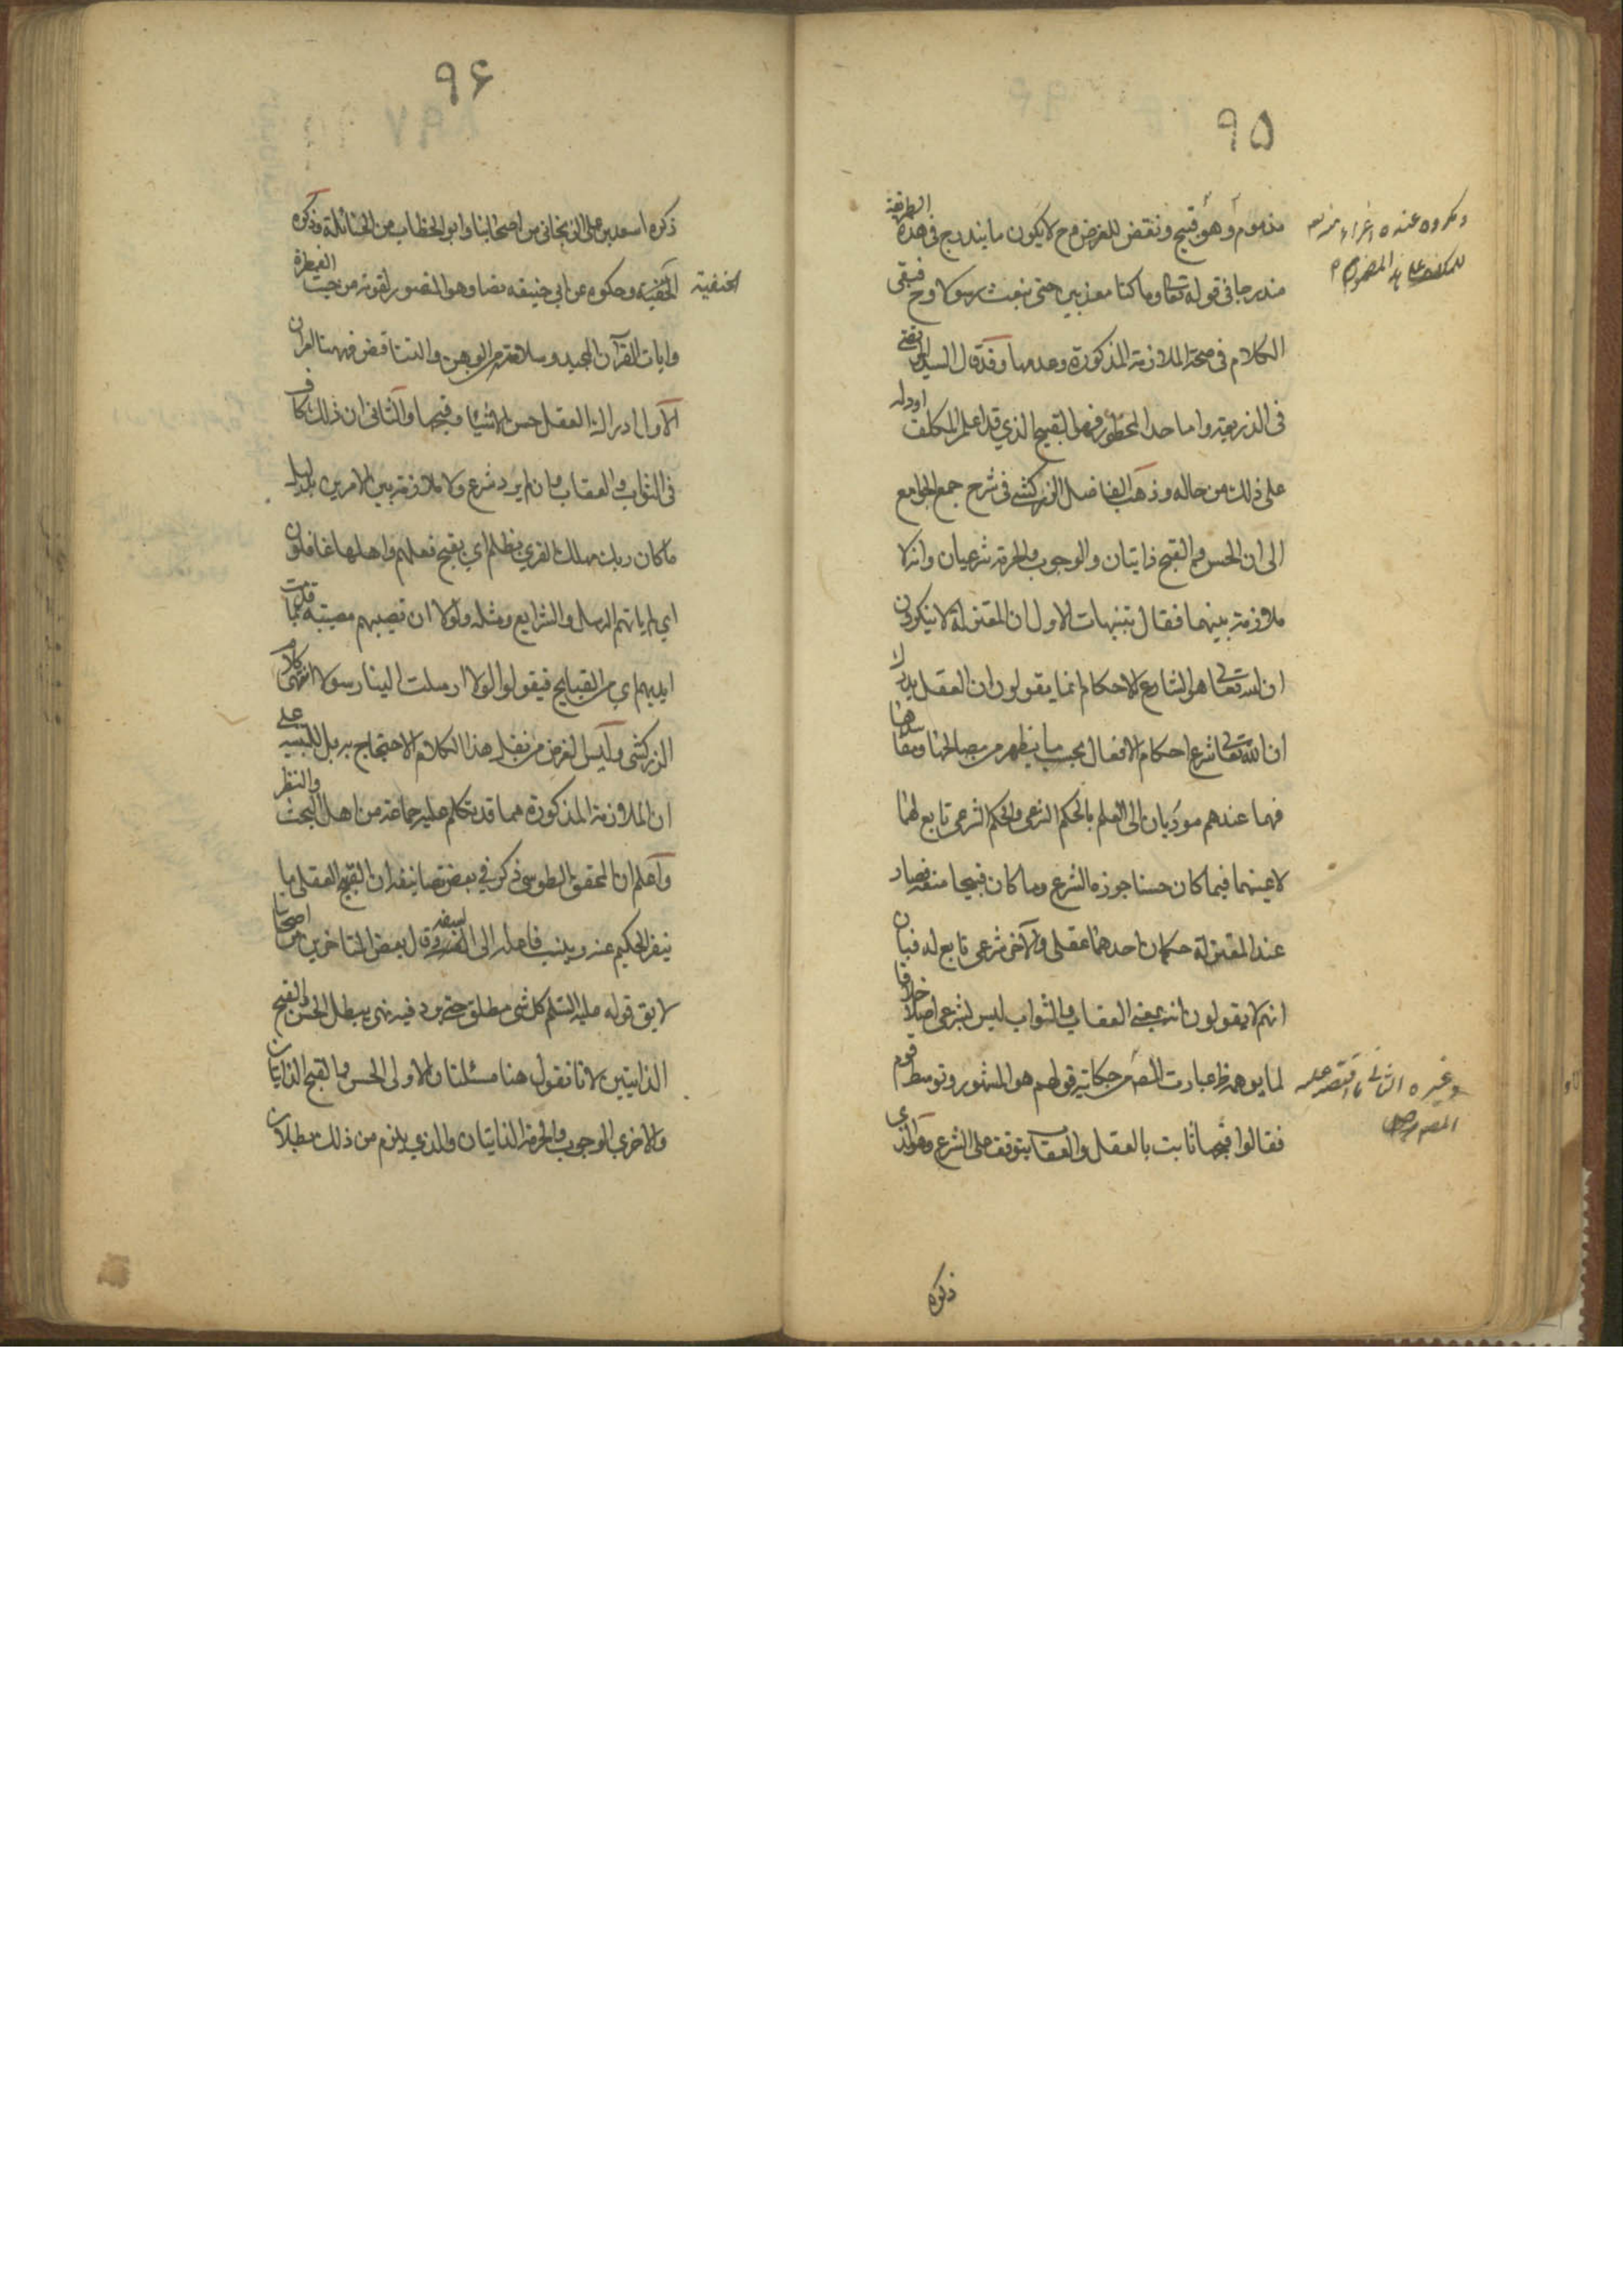 ۹۵
مذموم او هو قبيح و نقض للغرض و ح لا يكون ما يندرج فى هذه الطريقة
مندرجا فى قوله تعا وما كنا معذبين حتى نبعث رسولا وح فيبقى
الكلام فى صحة الملازمة المذكورة وعدمها وقد قال السيد المرتضى
فى الذريعة واما حد المحظور فهو القبيح الذي قد اعلم المكلف او دله
على ذلك من حاله وذهب الفاضل الزركشى فى شرح جمع الجوامع
الى ان الحسن والقبح ذاتيان والوجوب والحرمة شرعيان وانه لا
ملازمة بينهما فقال تنبيهات الاول ان المعتزلة لا ينكرون
ان الله تعا هو الشارع للاحكام انما يقولون ان العقل يدرك
ان الله تعا شرع احكام الافعال بحسب ما يظهر من مصالحها ومفاسدها
فهما عندهم موديان الى العلم بالحكم الشرعى والحكم الشرعى تابع لهما
لا عينهما فيما كان حسنا جوزه الشرع وما كان قبيحا منعه فصار
عند المعتزلة حكمان احدهما عقلى والآخر شرعى تابع له فبان
انهم لا يقولون انه بمعنى العقاب والثواب ليس بشرعى اصلا خلافا
لما يوهمه ظ عبارت المص من حكاية قولهم هو المشهور وتوسط قوم
فقالوا قبحها ثابت بالعقل والعقاب يتوقف على الشرع وهو الذى
ذكره
ومكروه عنده
وغيره الثانى ما اقتصر عليه
المصر
۹۶
ذكره اسعد بن على الزنجانى من اصحابنا وابو الخطاب من الحنابلة وذكره
الحنفية وحكوه عن ابي حنيفه نصا وهو المنصور لقوته من حيث الفطرة
الحنفية
وايات القرآن المجيد وسلامته من الوهن والتناقض فههنا امران
الاول ادراك العقل حسن الاشياء وقبحها والثانى ان ذلك كاف
فى الثواب والعقاب وان لم يرد شرع ولا ملازمة بين الامرين بدليل
ما كان ربك مهلك القرى بظلم اي بقبح فعلهم واهلها غافلون
اي لم ياتهم الرسل والشرايع ومثله ولولا ان تصيبهم مصيبة بما قدمت
ايديهم اي من القبايح فيقولوا لولا ارسلت الينا رسولا انتهى كلام
الزركشى وليس لغرض من نقل هذا الكلام الاحتجاج به بل التنبيه على
ان الملازمة المذكورة مما قد تكلم عليه جماعة من اهل البحث والنظر
واعلم ان المحقق الطوسى ذكر في بعض تصانيفه ان القبيح العقلى ما
ينفر الحكيم عنه وينسب فاعله الى السفه وقال بعض المتاخرين من اصحابنا
لا يق قوله عليه السلم كل شى مطلق حتى يرد فيه نهى يبطل الحسن والقبح
الذاتيين لانا نقول هنا مسئلتان الاولى الحسن والقبح الذاتيان
والاخرى الوجوب والحرمة الذاتيتان والذي يلزم من ذلك بطلان